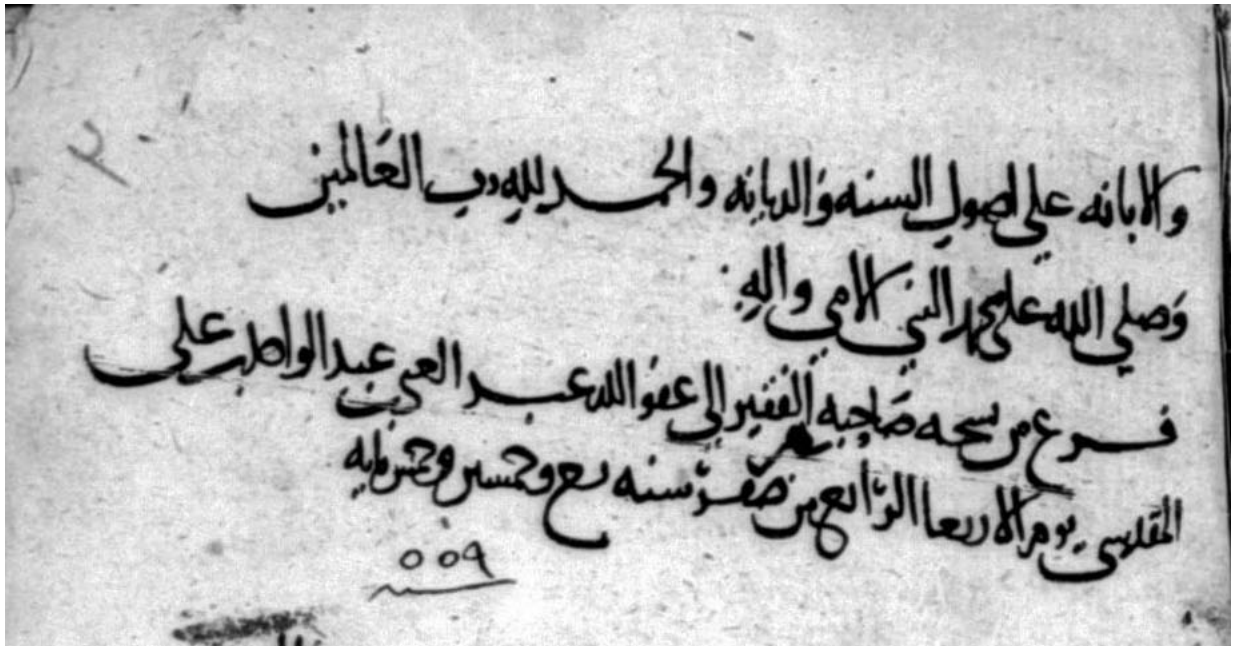 والابانه على اصول السنه والديانه والحمد لله رب العالمين
وصلي الله على محمد النبي الامي واله
فرغ من نسخه صاحبه الفقير الى عفو الله عبد الغني بن عبد الواحد بن علي
المقدسي يوم الاربعا الرابع من صفر سنه تسع وخمسين وخمس مايه
٥٥٩
سنه
٢